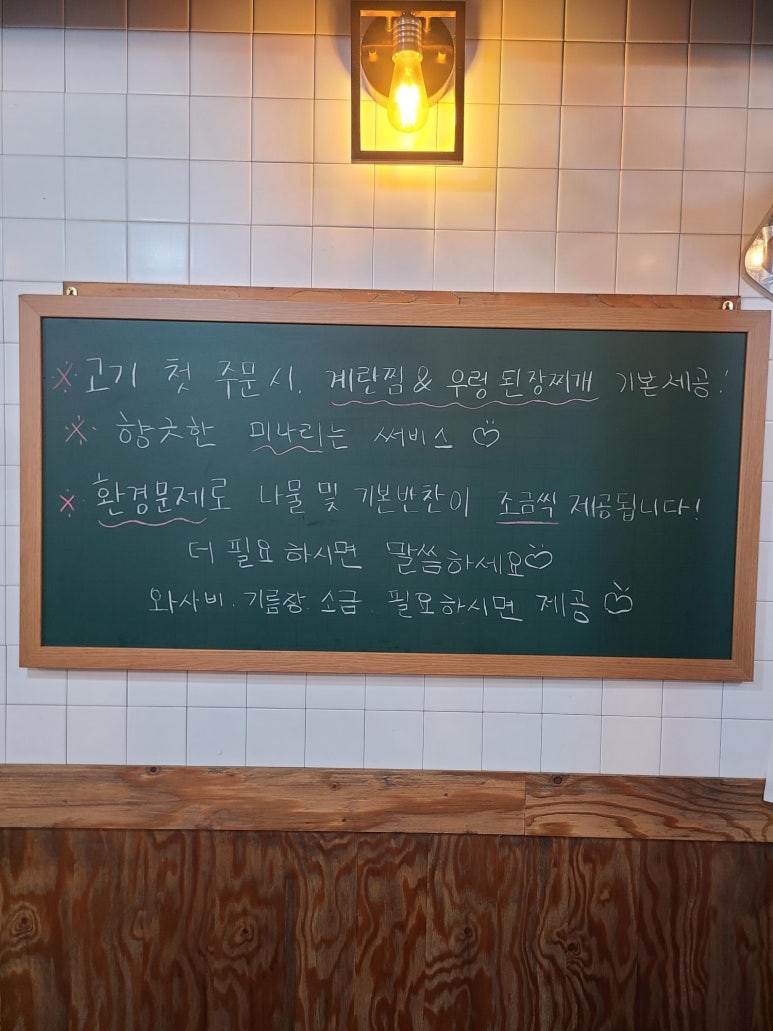 ※ 고기 첫 주문시. 계란찜 & 우렁 된장찌개 기본제공!
※ 향긋한 미나리는 써비스
※ 환경문제로 나물 및 기본반찬이 조금씩 제공됩니다!
더 필요하시면 말씀하세요
와사비. 기름장. 소금. 필요하시면 제공